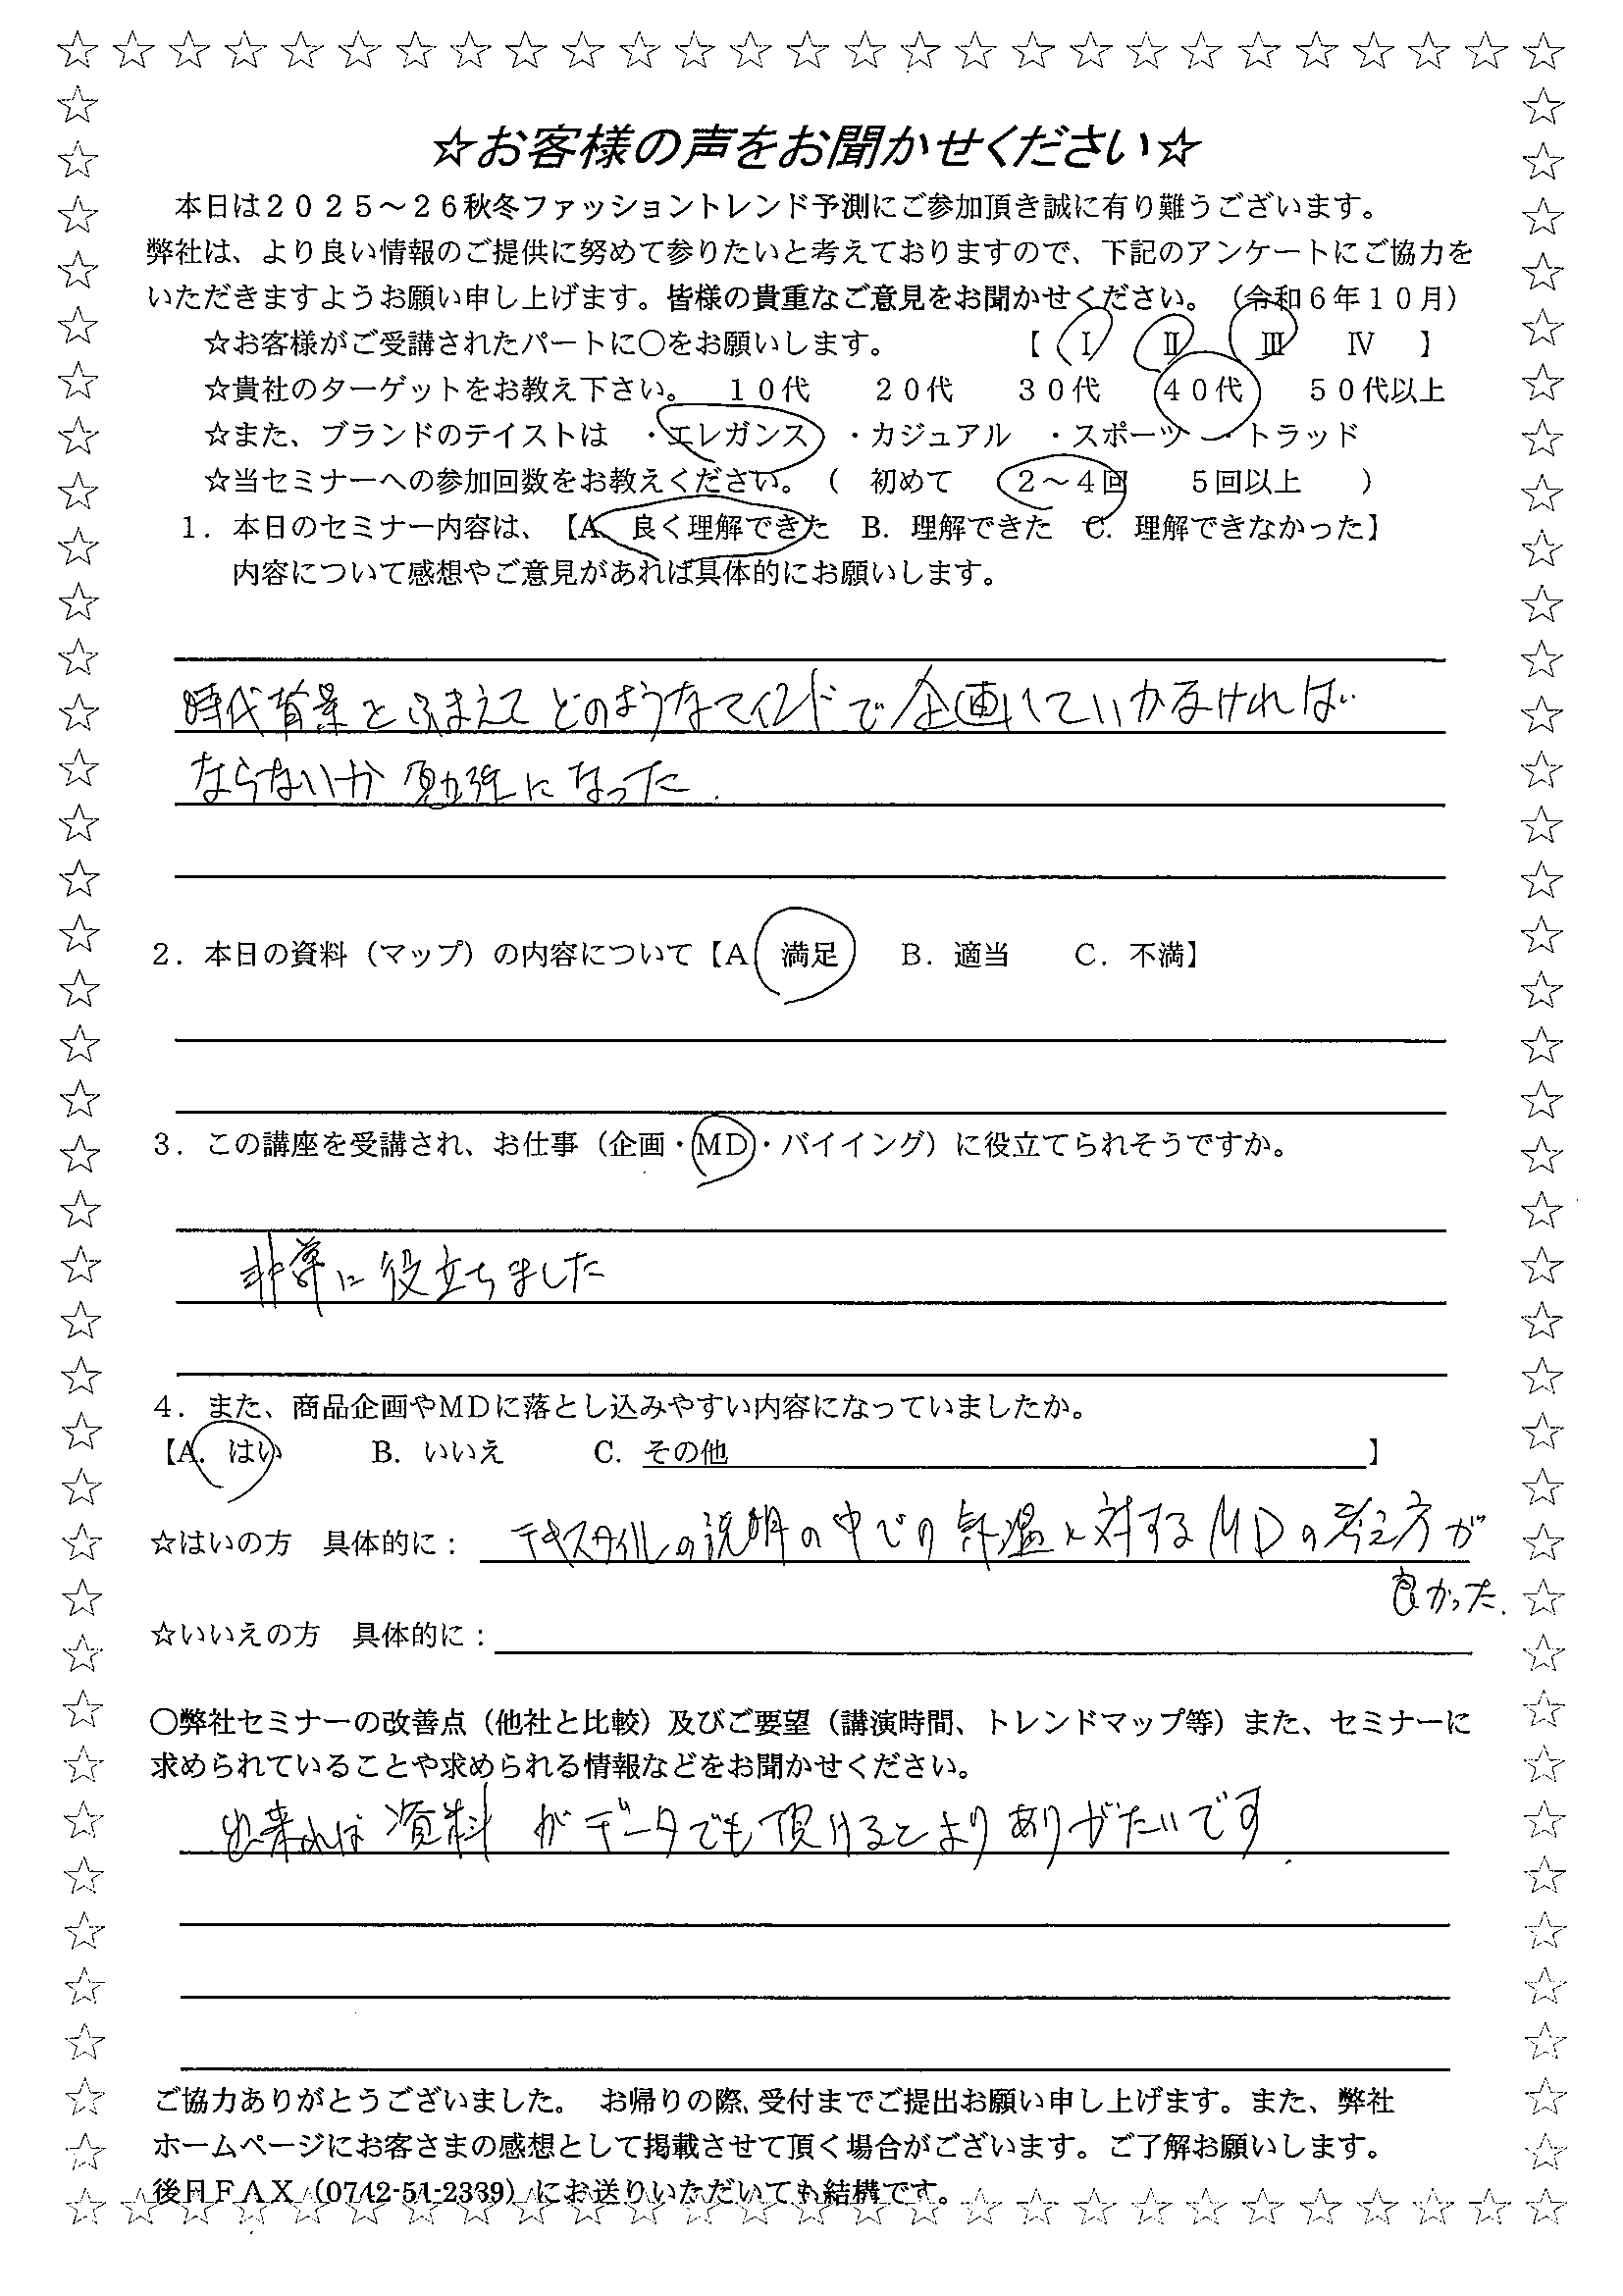 ☆お客様の声をお聞かせください☆
本日は２０２５～２６秋冬ファッショントレンド予測にご参加頂き誠に有り難うございます。
弊社は、より良い情報のご提供に努めて参りたいと考えておりますので、下記のアンケートにご協力を
いただきますようお願い申し上げます。皆様の貴重なご意見をお聞かせください。（令和６年１０月）
☆お客様がご受講されたパートに○をお願いします。　【　Ⅰ　Ⅱ　Ⅲ　Ⅳ　】
☆貴社のターゲットをお教え下さい。　１０代　２０代　３０代　４０代　５０代以上
☆また、ブランドのテイストは　・エレガンス　・カジュアル　・スポーツ　・トラッド
☆当セミナーへの参加回数をお教えください。（　初めて　２～４回　５回以上　）
１．本日のセミナー内容は、【A.　良く理解できた　B．理解できた　C．理解できなかった】
内容について感想やご意見があれば具体的にお願いします。
時代背景をふまえてどのようなマインドで企画していかなければ
ならないか勉強になった.
２．本日の資料（マップ）の内容について【A　満足　B．適当　C．不満】
３．この講座を受講され、お仕事（企画・MD・バイイング）に役立てられそうですか。
非常に役立ちました
４．また、商品企画やMDに落とし込みやすい内容になっていましたか。
【A．はい　B．いいえ　C．その他　】
☆はいの方　具体的に：テキスタイルの説明の中での気温に対するMDの考え方が
良かった.
☆いいえの方　具体的に：
○弊社セミナーの改善点（他社と比較）及びご要望（講演時間、トレンドマップ等）また、セミナーに
求められていることや求められる情報などをお聞かせください。
出来れば資料がデータでも頂けるとよりありがたいです.
ご協力ありがとうございました。　お帰りの際、受付までご提出お願い申し上げます。また、弊社
ホームページにお客さまの感想として掲載させて頂く場合がございます。ご了解お願いします。
後日ＦＡＸ（0742-51-2339）にお送りいただいても結構です。